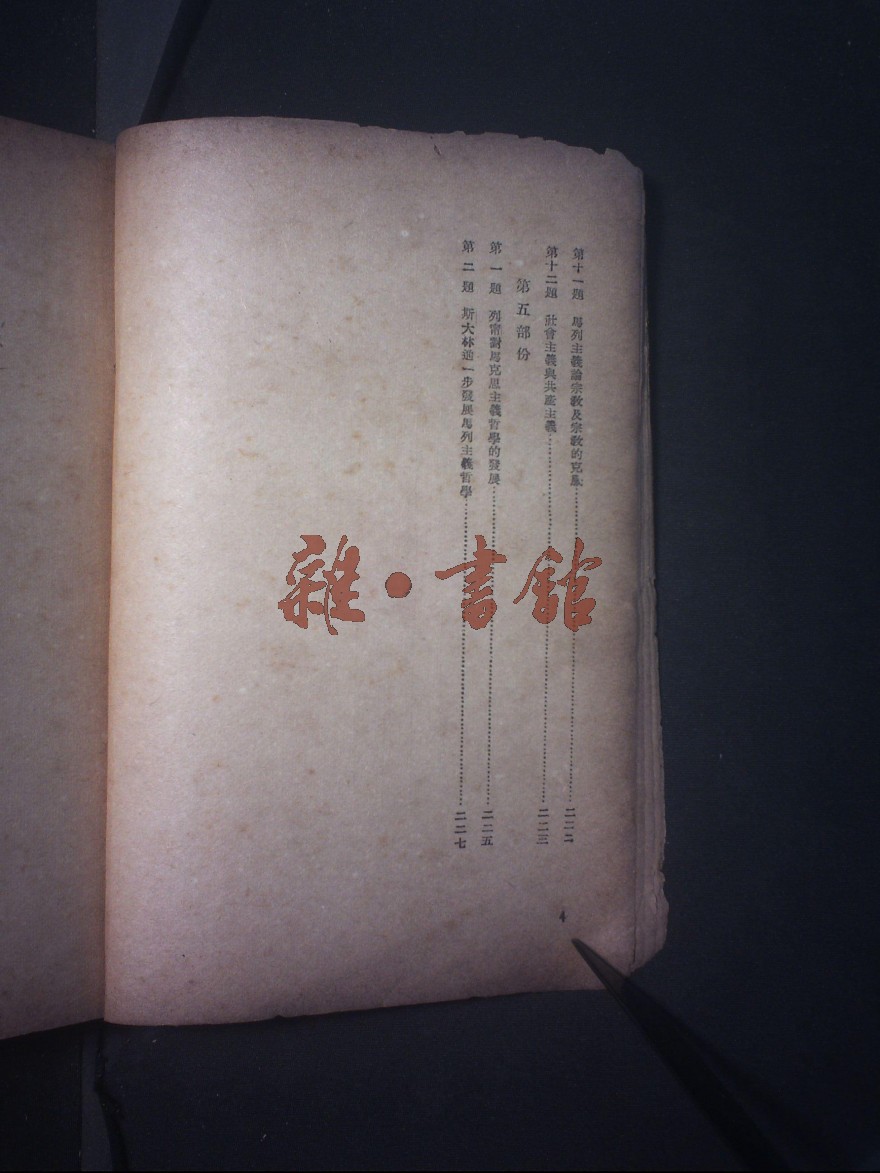 第十一題 馬列主義論宗敎及宗敎的克服……二二二
第十二題 社會主義與共產主義……二二三
第五部份
第一題 列甯對馬克思主義哲學的發展……二二五
第二題 斯大林進一步發展馬列主義哲學……二二七
4
雜・書館